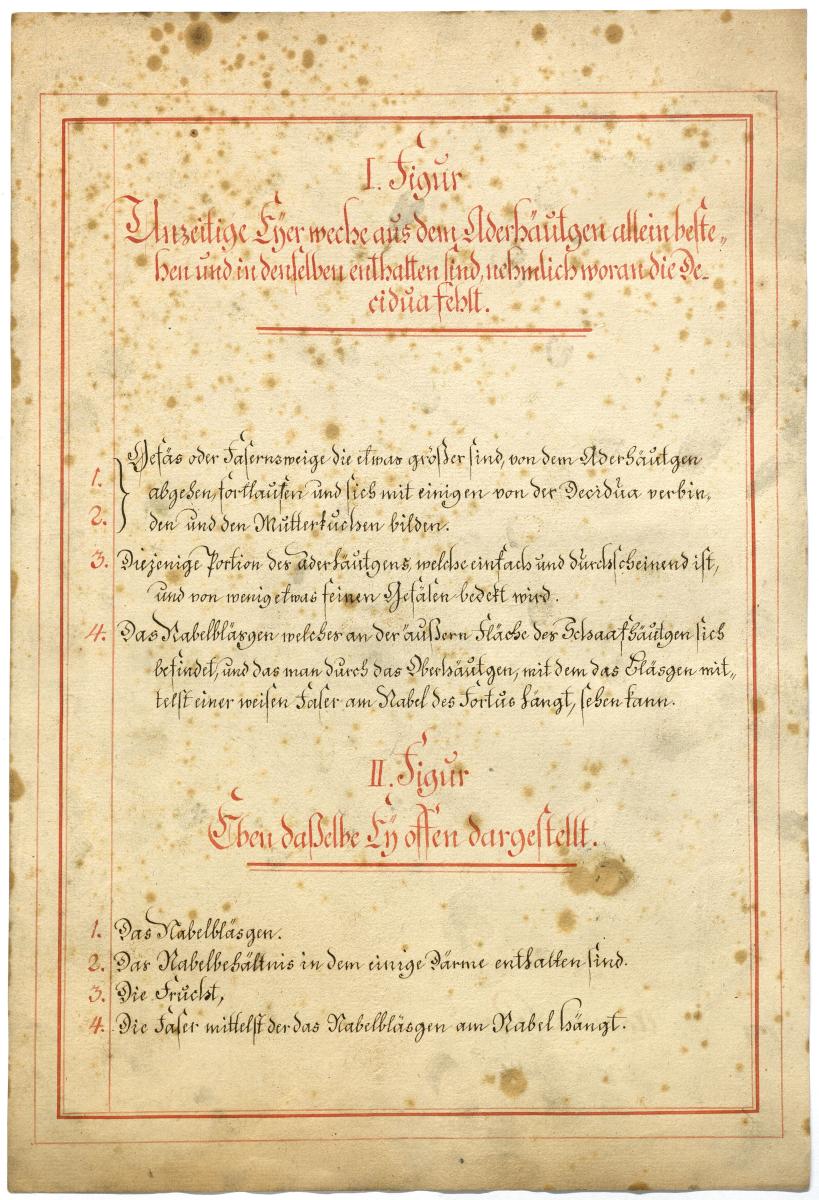 I. Figur
Unzeitige Eÿer weche aus dem Aderhäutgen allein beste„
hen und in denselben enthalten sind, nehmlich woran die De-
cidua fehlt.
Gefäs oder Fasernzweige die etwas größer sind, von dem Aderhäutgen
1.
abgehen, fortlaufen und sich mit einigen von der Decidua verbin,
2. den und den Mutterkuchen bilden.
3. Diejenige Portion des Aderhäutgens, welche einfach und durchscheinend ist,
und von wenig etwas feinen Gefäsen bedekt wird.
4. Das Nabelbläsgen welches an der äußern Fläche des Schaafhäutgen sich
befindet, und das man durch das Oberhäutgen, mit dem das Bläsgen mit„
telst einer weisen Faser am Nabel des Foetus hängt, sehen kann.
II. Figur
Eben daßelbe Eÿ offen dargestellt.
1. Das Nabelbläsgen.
2. Das Nabelbehältnis in dem einige Därme enthalten sind.
3. Die Frucht,
4. Die Faser mittelst der das Nabelbläsgen am Nabel hängt.